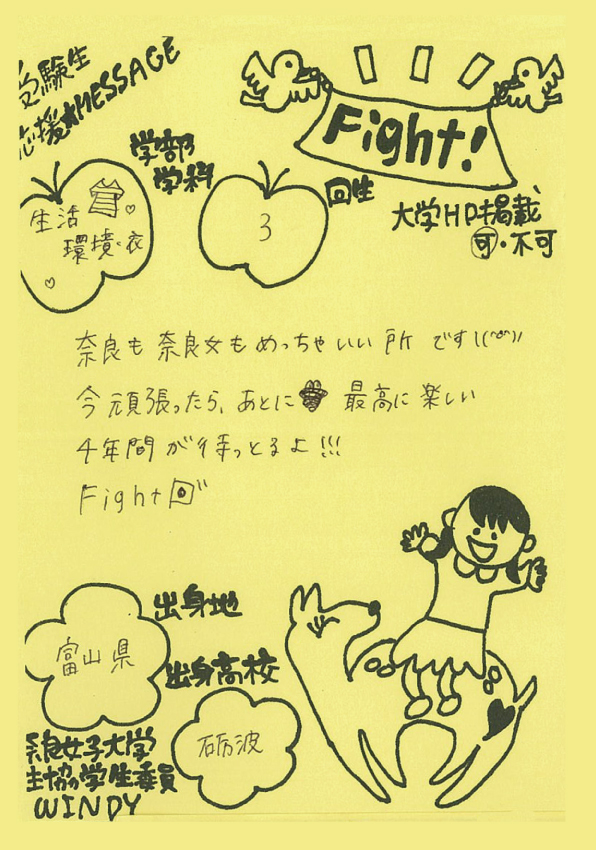 受験生
応援★MESSAGE
Fight!
学部
学科
生活
環境・衣
3
回生
大学HP掲載
可・不可
奈良も奈良女もめっちゃいい所です!
今頑張ったら、あとに 最高に楽しい
4年間が待っとるよ!!!
Fight
出身地
富山県
出身高校
砺波
奈良女子大学
生協学生委員
WINDY